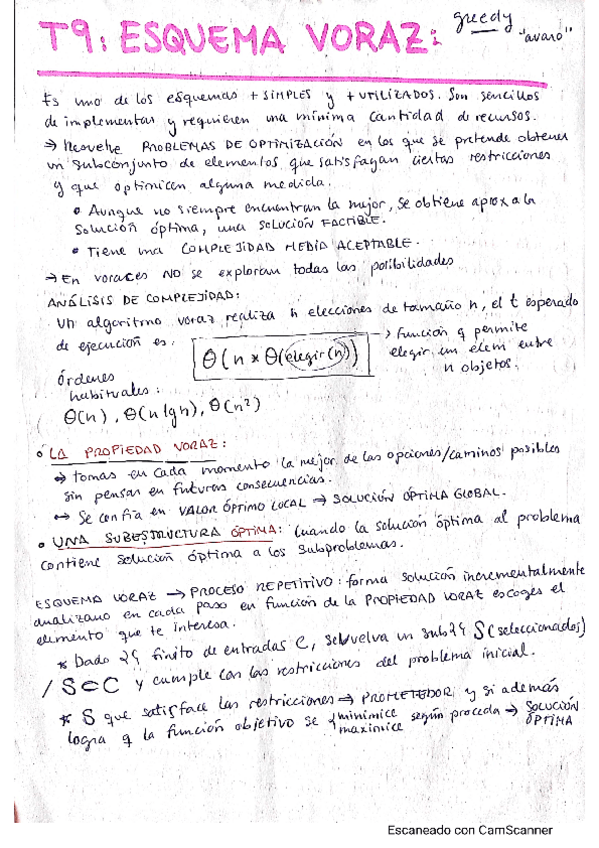 T9: ESQUEMA VORAZ: greedy "avaro"
Es uno de los esquemas + SIMPLES y + UTILIZADOS. Son sencillos
de implementar y requieren una mínima cantidad de recursos.
→ Resuelve PROBLEMAS DE OPTIMIZACIÓN en los que se pretende obtener
un subconjunto de elementos que satisfagan ciertas restricciones
y que optimicen alguna medida.
• Aunque no siempre encuentran la mejor, se obtiene aprox a la
solución óptima, una SOLUCIÓN FACTIBLE.
• Tiene una COMPLEJIDAD MEDIA ACEPTABLE.
→ En voraces NO se exploran todas las posibilidades
ANÁLISIS DE COMPLEJIDAD:
Un algoritmo voraz realiza n elecciones de tamaño n, el t esperado
de ejecución es: Θ(n * Θ(elegir(n))) → función q permite
elegir un elem entre
n objetos.
Órdenes
habituales:
Θ(n), Θ(n lg n), Θ(n²)
• LA PROPIEDAD VORAZ:
→ tomas en cada momento la mejor de las opciones/caminos posibles
sin pensar en futuras consecuencias.
↔ Se confía en VALOR ÓPTIMO LOCAL → SOLUCIÓN ÓPTIMA GLOBAL.
• UNA SUBESTRUCTURA ÓPTIMA: Cuando la solución óptima al problema
contiene solución óptima a los subproblemas.
ESQUEMA VORAZ → PROCESO REPETITIVO: forma solución incrementalmente
analizano en cada paso en función de la PROPIEDAD VORAZ escoges el
elemento que te interesa.
* Dado finito de entradas C, se S (seleccionados)
/ S⊂C y cumple con las restricciones del problema inicial.
* S que satisface las restricciones → PROMETEDOR, y si además
logra q la función objetivo se { minimice maximice según proceda → SOLUCIÓN
ÓPTIMA
Escaneado con CamScanner